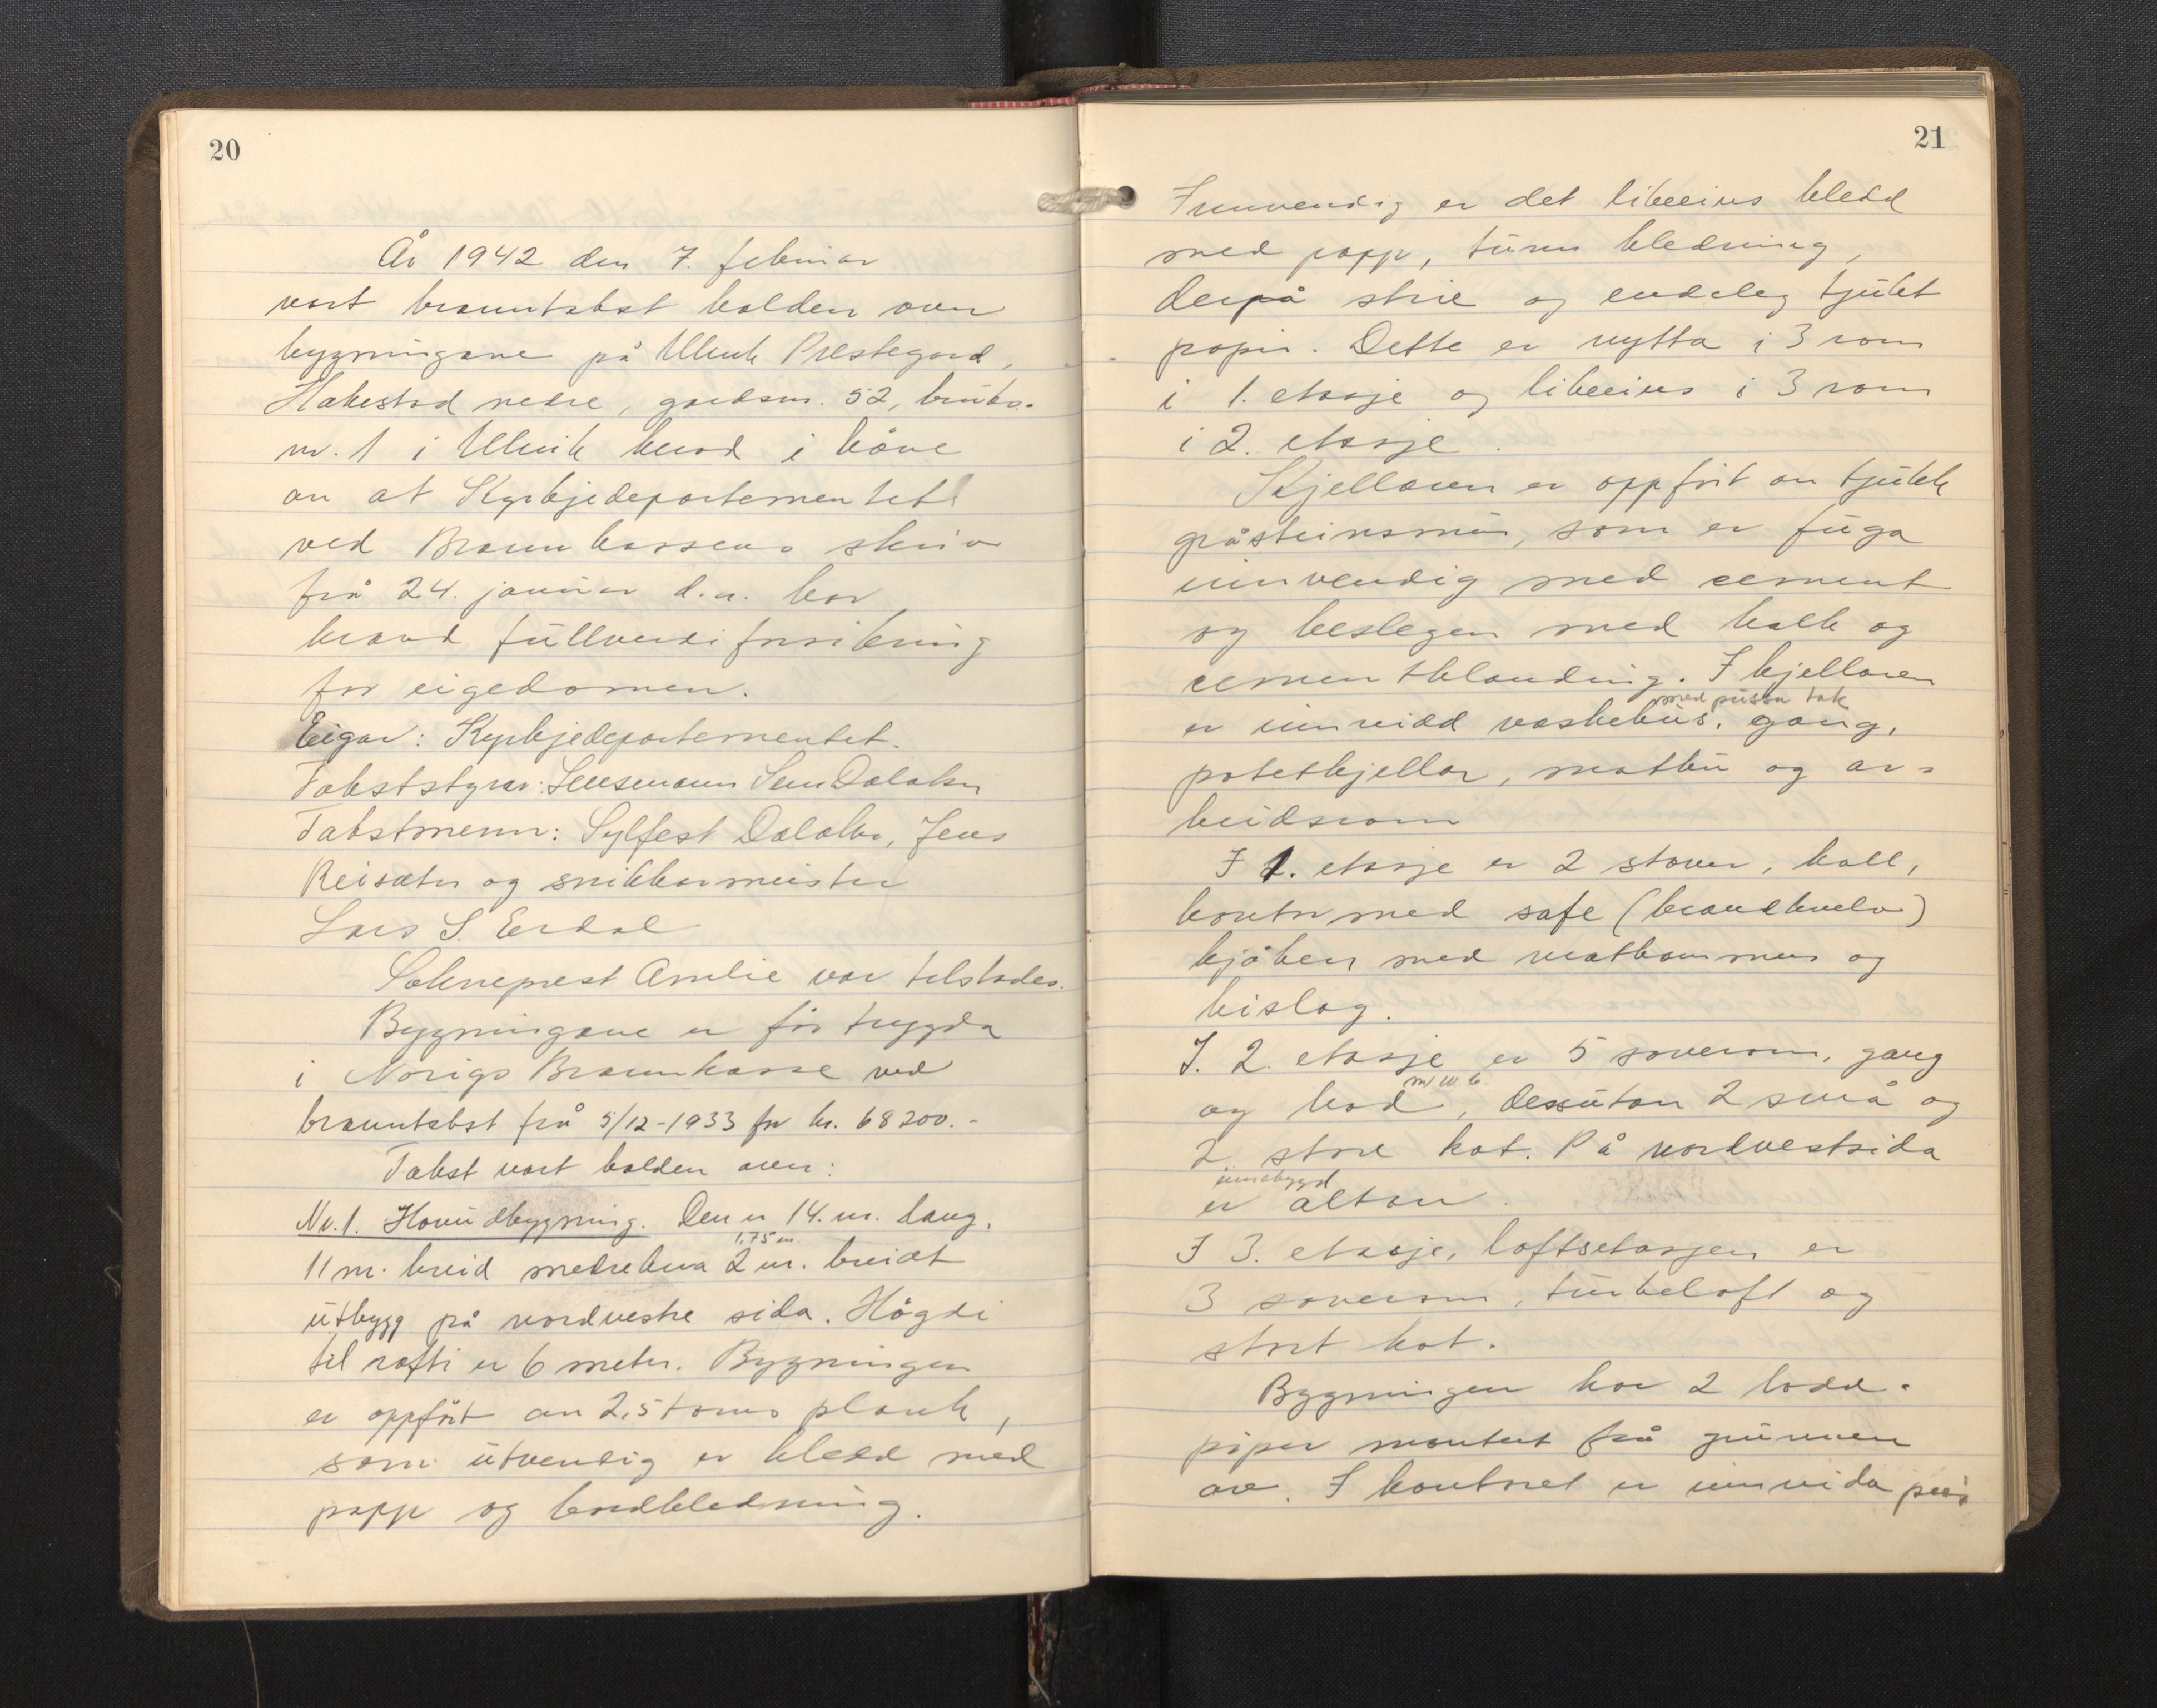 20
År 1942 den 7. februar
vart branntakst halden over
bygningane på Ulvik Prestegard,
Hakestad nedre, gardsnr. 52, bruks-
nr. 1 i Ulvik herad i høve
av at Kyrkjedepartementet
ved Brannkassens skriv
frå 24. januar d.a. har
kravd fullverdiforsikring
for eigedomen.
Eigar: Kyrkjedepartementet.
Takststyrar: Lensmann Dalaker
Takstmenn: Sylfest Dalaker, Jens
Reisæter og snikkarmeister
Lars S. Erdal
Sokneprest Amlie var tilstades.
Bygningane er før trygda
i Norigs Brannkasse ved
branntakst frå 5/12-1933 for kr. 68200.-
Takst vart halden over:
Nr. 1. Hovudbygning. Den er 14. m. lang,
1,75 m.
11 m. breid medrekna 2 m. breidt
utbygg på nordvestre sida. Høgdi
til rafti er 6 meter. Bygningen
er oppført av 2,5 toms plank,
som utvendig er kledd med
papp og bordkledning.
21
Innvendig er det likeeins kledd
med papp, turr kledning,
derpå strie og endeleg tjukt
papir. Dette er nytta i 3 rom
i 1. etasje og likeeins i 3 rom
i 2. etasje.
Kjellaren er oppført av tjukk
gråsteinsmur, som er fuga
innvendig med cement
og beslegen med kalk og
cementblanding. I kjellaren
med pussa tak
er innreidd vaskehus, gang,
potetkjellar, matbu og ar-
beidsrom
I 1. etasje er 2 stover, hall,
kontor med safe (brandkvelv)
kjøken med matkammer og
bislag.
I. 2. etasje er 5 soverom, gang
m/ w.c.
og bad, dessutan 2 små og
2 store kot. På nordvestsida
innebygd
er altan.
I 3. etasje, loftsetasjen er
3 soverom, turkeloft og
stort kot.
Bygningen har 2 lodd-
piper montert frå grunnen
av. I kontoret er innreida